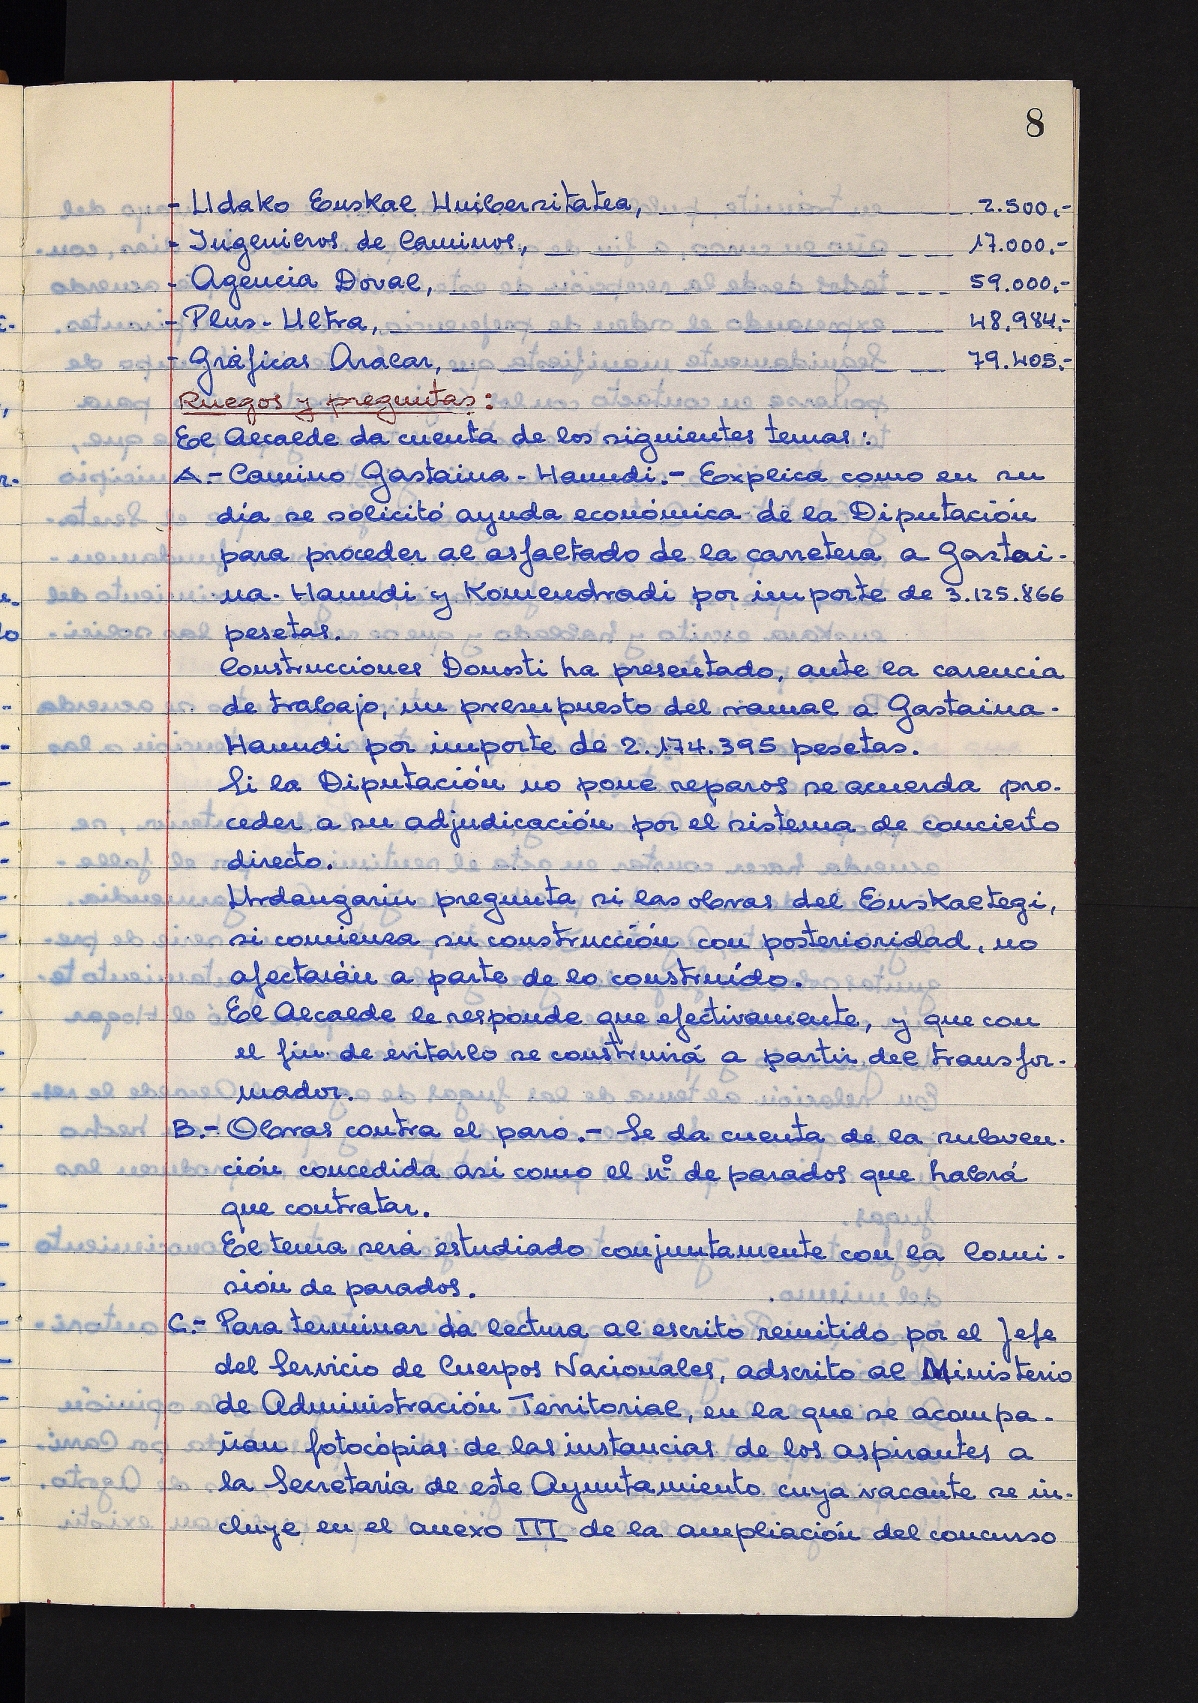 8
- Udako Euskal Uniberzitatea, 2.500,-
- Ingenieros de Caminos, 17.000.-
- Agencia Doval, 59.000,-
- Plus-Ultra, 48.984,-
- Gráficas Aralar, 79.405.-
Ruegos y preguntas:
El Alcalde da cuenta de los siguientes temas:
A.- Camino Gastaina - Hamudi.- Explica como en su
dia se solicitó ayuda económica de la Diputación
para proceder al asfaltado de la carretera a Gastai-
na-Hamudi y Komendradi por importe de 3.125.866
pesetas.
Construcciones Donosti ha presentado, ante la carencia
de trabajo, un presupuesto del ramal a Gastaina-
Hamudi por importe de 2.174.395 pesetas.
Si la Diputación no pone reparos se acuerda pro-
ceder a su adjudicación por el sistema de concierto
directo.
Urdangarin pregunta si las obras del Euskaltegi,
si comienza su construcción con posterioridad, no
afectarán a parte de lo construído.
El Alcalde le responde que efectivamente, y que con
el fin de evitarlo se construirá a partir del transfor-
mador.
B.- Obras contra el paro.- Se da cuenta de la subven-
ción concedida así como el nº de parados que habrá
que contratar.
El tema será estudiado conjuntamente con la Comi-
sión de parados.
C.- Para terminar da lectura al escrito remitido por el Jefe
del Servicio de Cuerpos Nacionales, adscrito al Ministerio
de Administración Territorial, en la que se acompa-
ñan fotocopias de las instancias de los aspirantes a
la Secretaría de este Ayuntamiento cuya vacante se in-
cluye en el anexo III de la ampliación del concurso